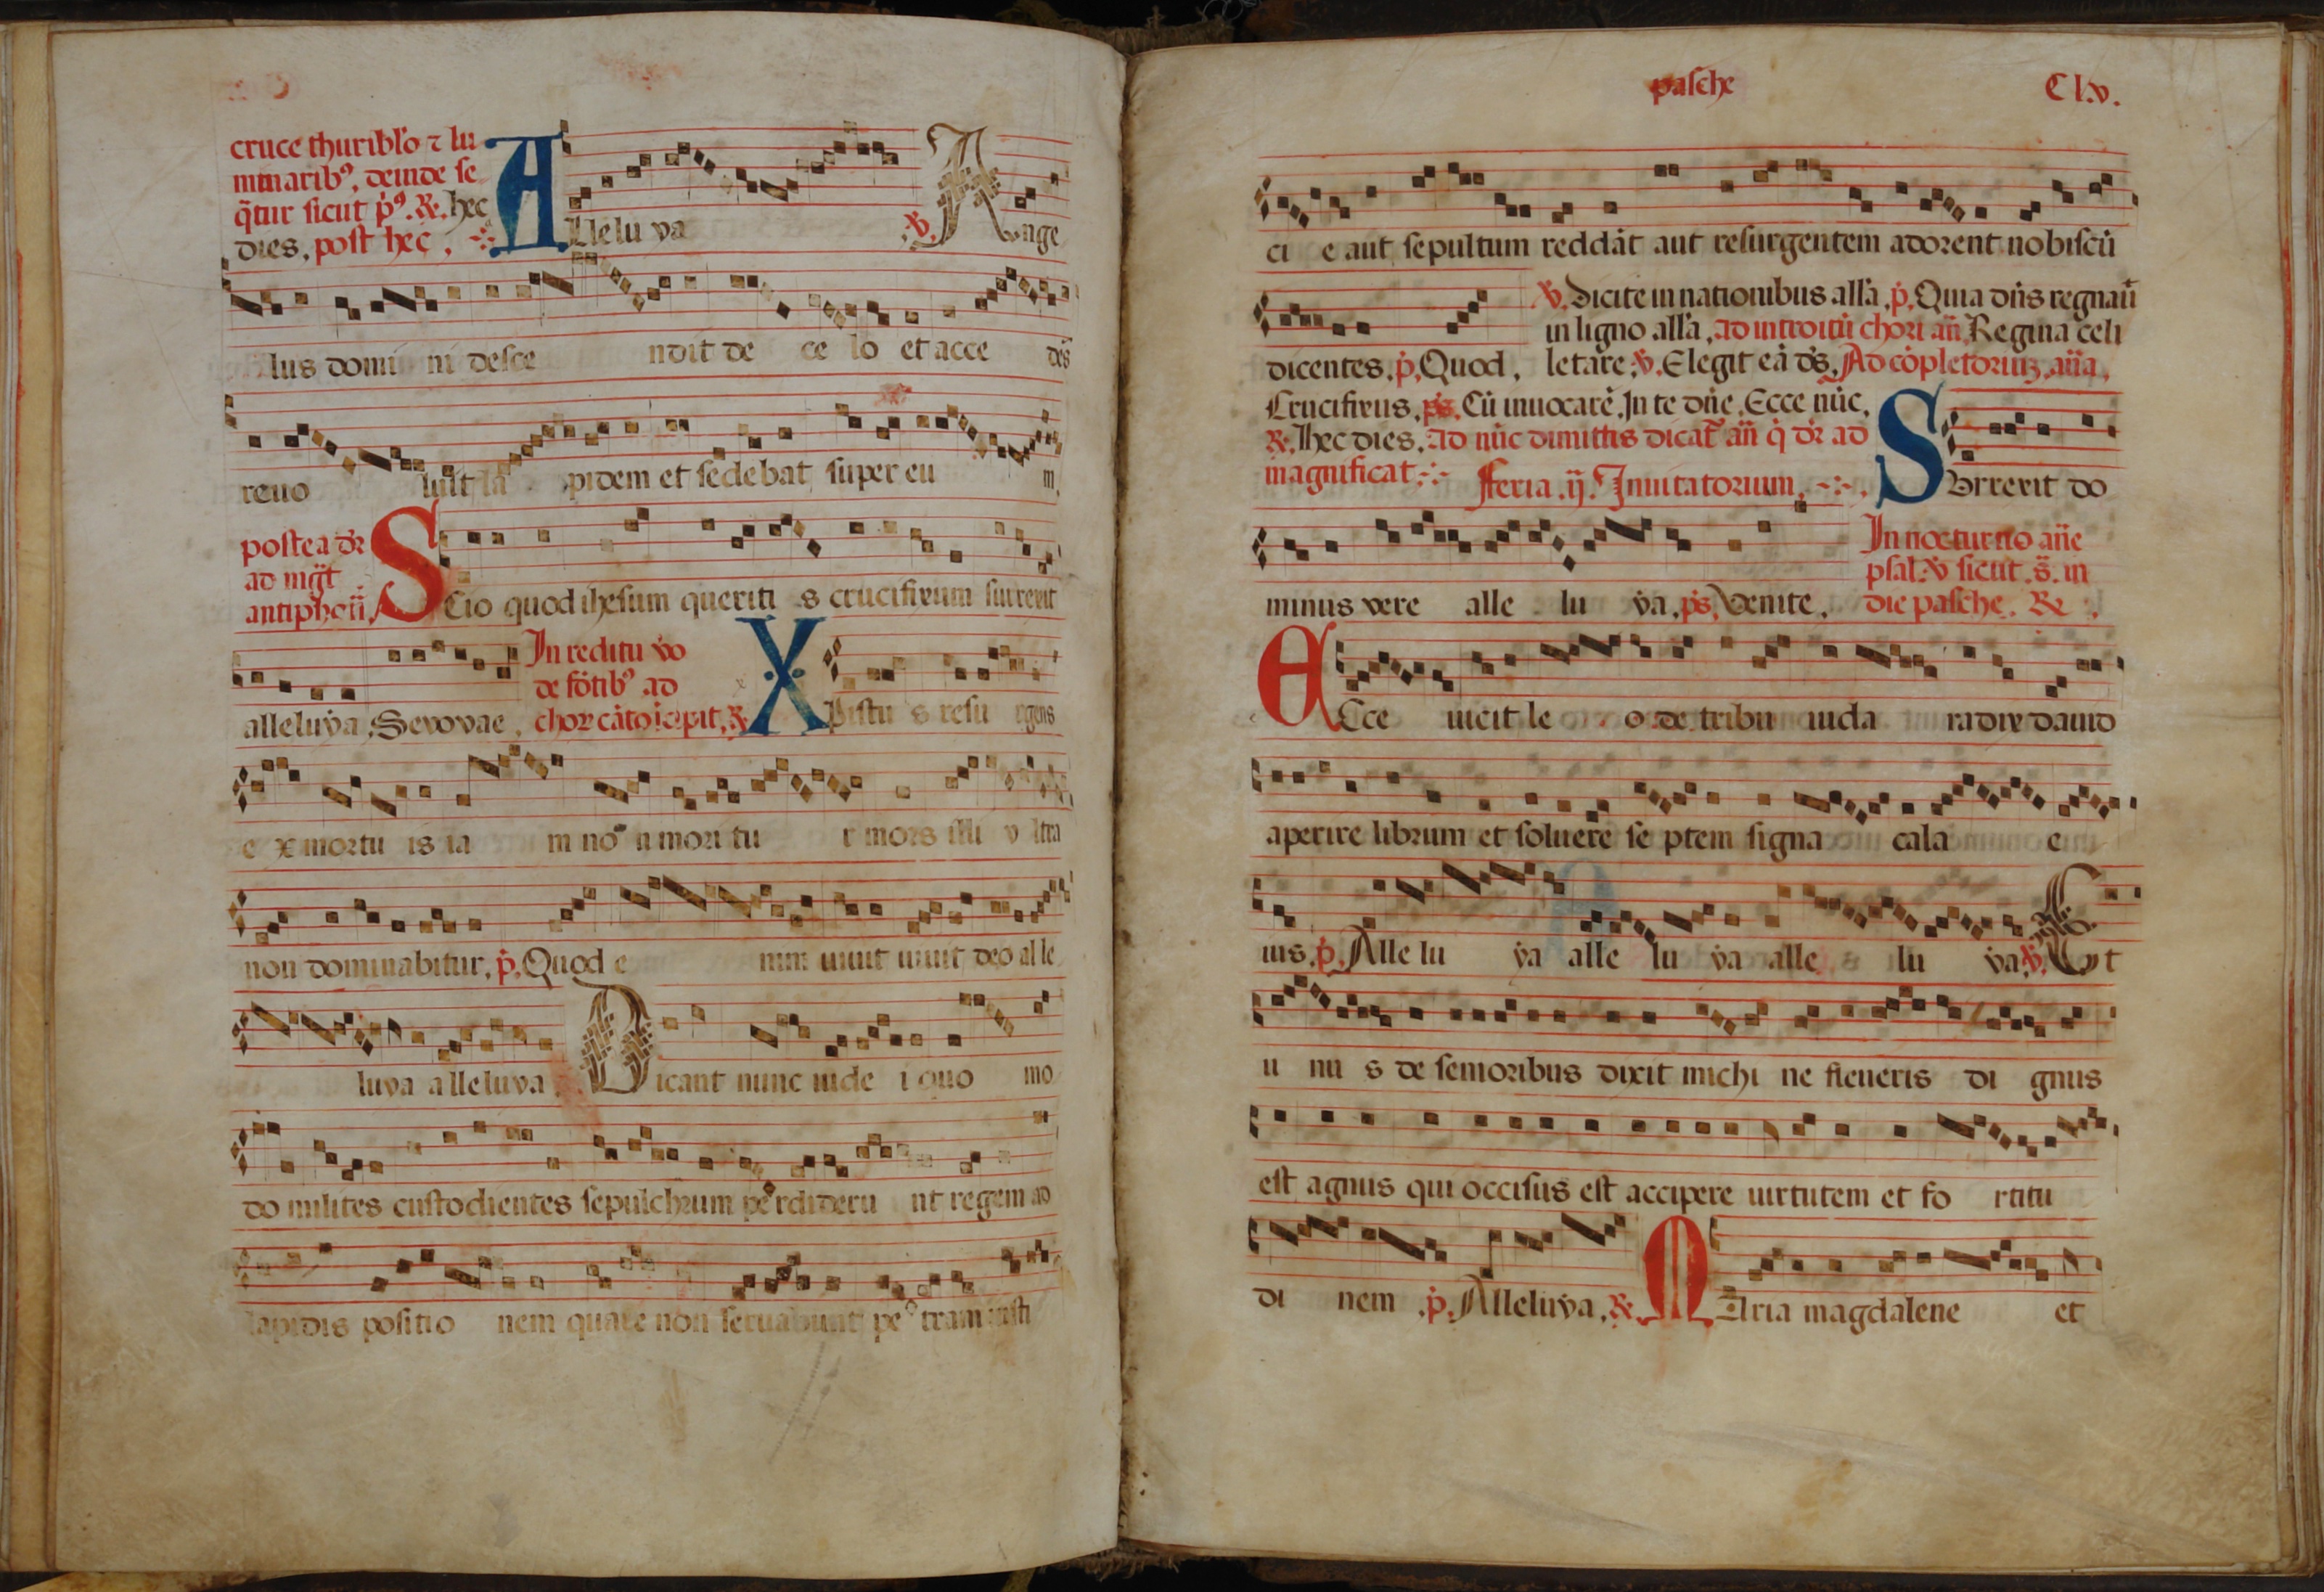 cruce thuribl'o ⁊ lu
minarib⁹, deinde se
q̄tur sicut p̄⁹. ℟. hec
dies, post hec.
Alleluya ℣. Ange
lus domini descendit de celo et accedēs
reuoluit lapidem et sedebat super eum.
postea dr̄
ad mḡt
antiphoñ.
Scio quod ihesum queritis crucifixum surrexit
alleluya, Seuouae.
In reditu v̄o
de fōtib⁹ ad
chorꝝ cāto īcipit, ℟.
Xpistus resurgens
ex mortuis iam non moritur mors illi vltra
non dominabitur, p̄. Quod enim uiuit uiuit deo alle
luya alleluya. Dicant nunc iudei quomo
do milites custodientes sepulchrum perdiderunt regem ad
lapidis positionem quare non seruabunt petram iusti
pasche Clv.
cie aut sepultum reddāt aut resurgentem adorent nobiscū
℣. Dicite in nationibus all'a. p̄. Quia dn̄s regnauit
in ligno all'a, ad introitū chori an̄. Regina celi
dicentes. p̄. Quod. letare. ℣. Elegit eā d̄s. Ad cōpletoriuꝫ. an̄a.
Crucifixus. p̄s. Cū inuocarē. In te dn̄e. Ecce nūc.
℟. Hec dies. ad nūc dimittis dicat̄ an̄ q̄ dr̄ ad
magnificat
Feria .ij. Inuitatorium.
Surrexit do
minus vere alleluya. p̄s. Venite.
In nocturno an̄e
psal. ℣ sicut .s̄. in
die pasche. ℟.
Ecce uicit leo de tribu iuda radix dauid
aperire librum et soluere septem signacala e
ius. p̄. Alleluya alleluya alleluya. ℣. Et
unus de senioribus dixit michi ne fleueris dignus
est agnus qui occisus est accipere uirtutem et fortitu
dinem .p̄. Alleluya. ℟. Maria magdalene et